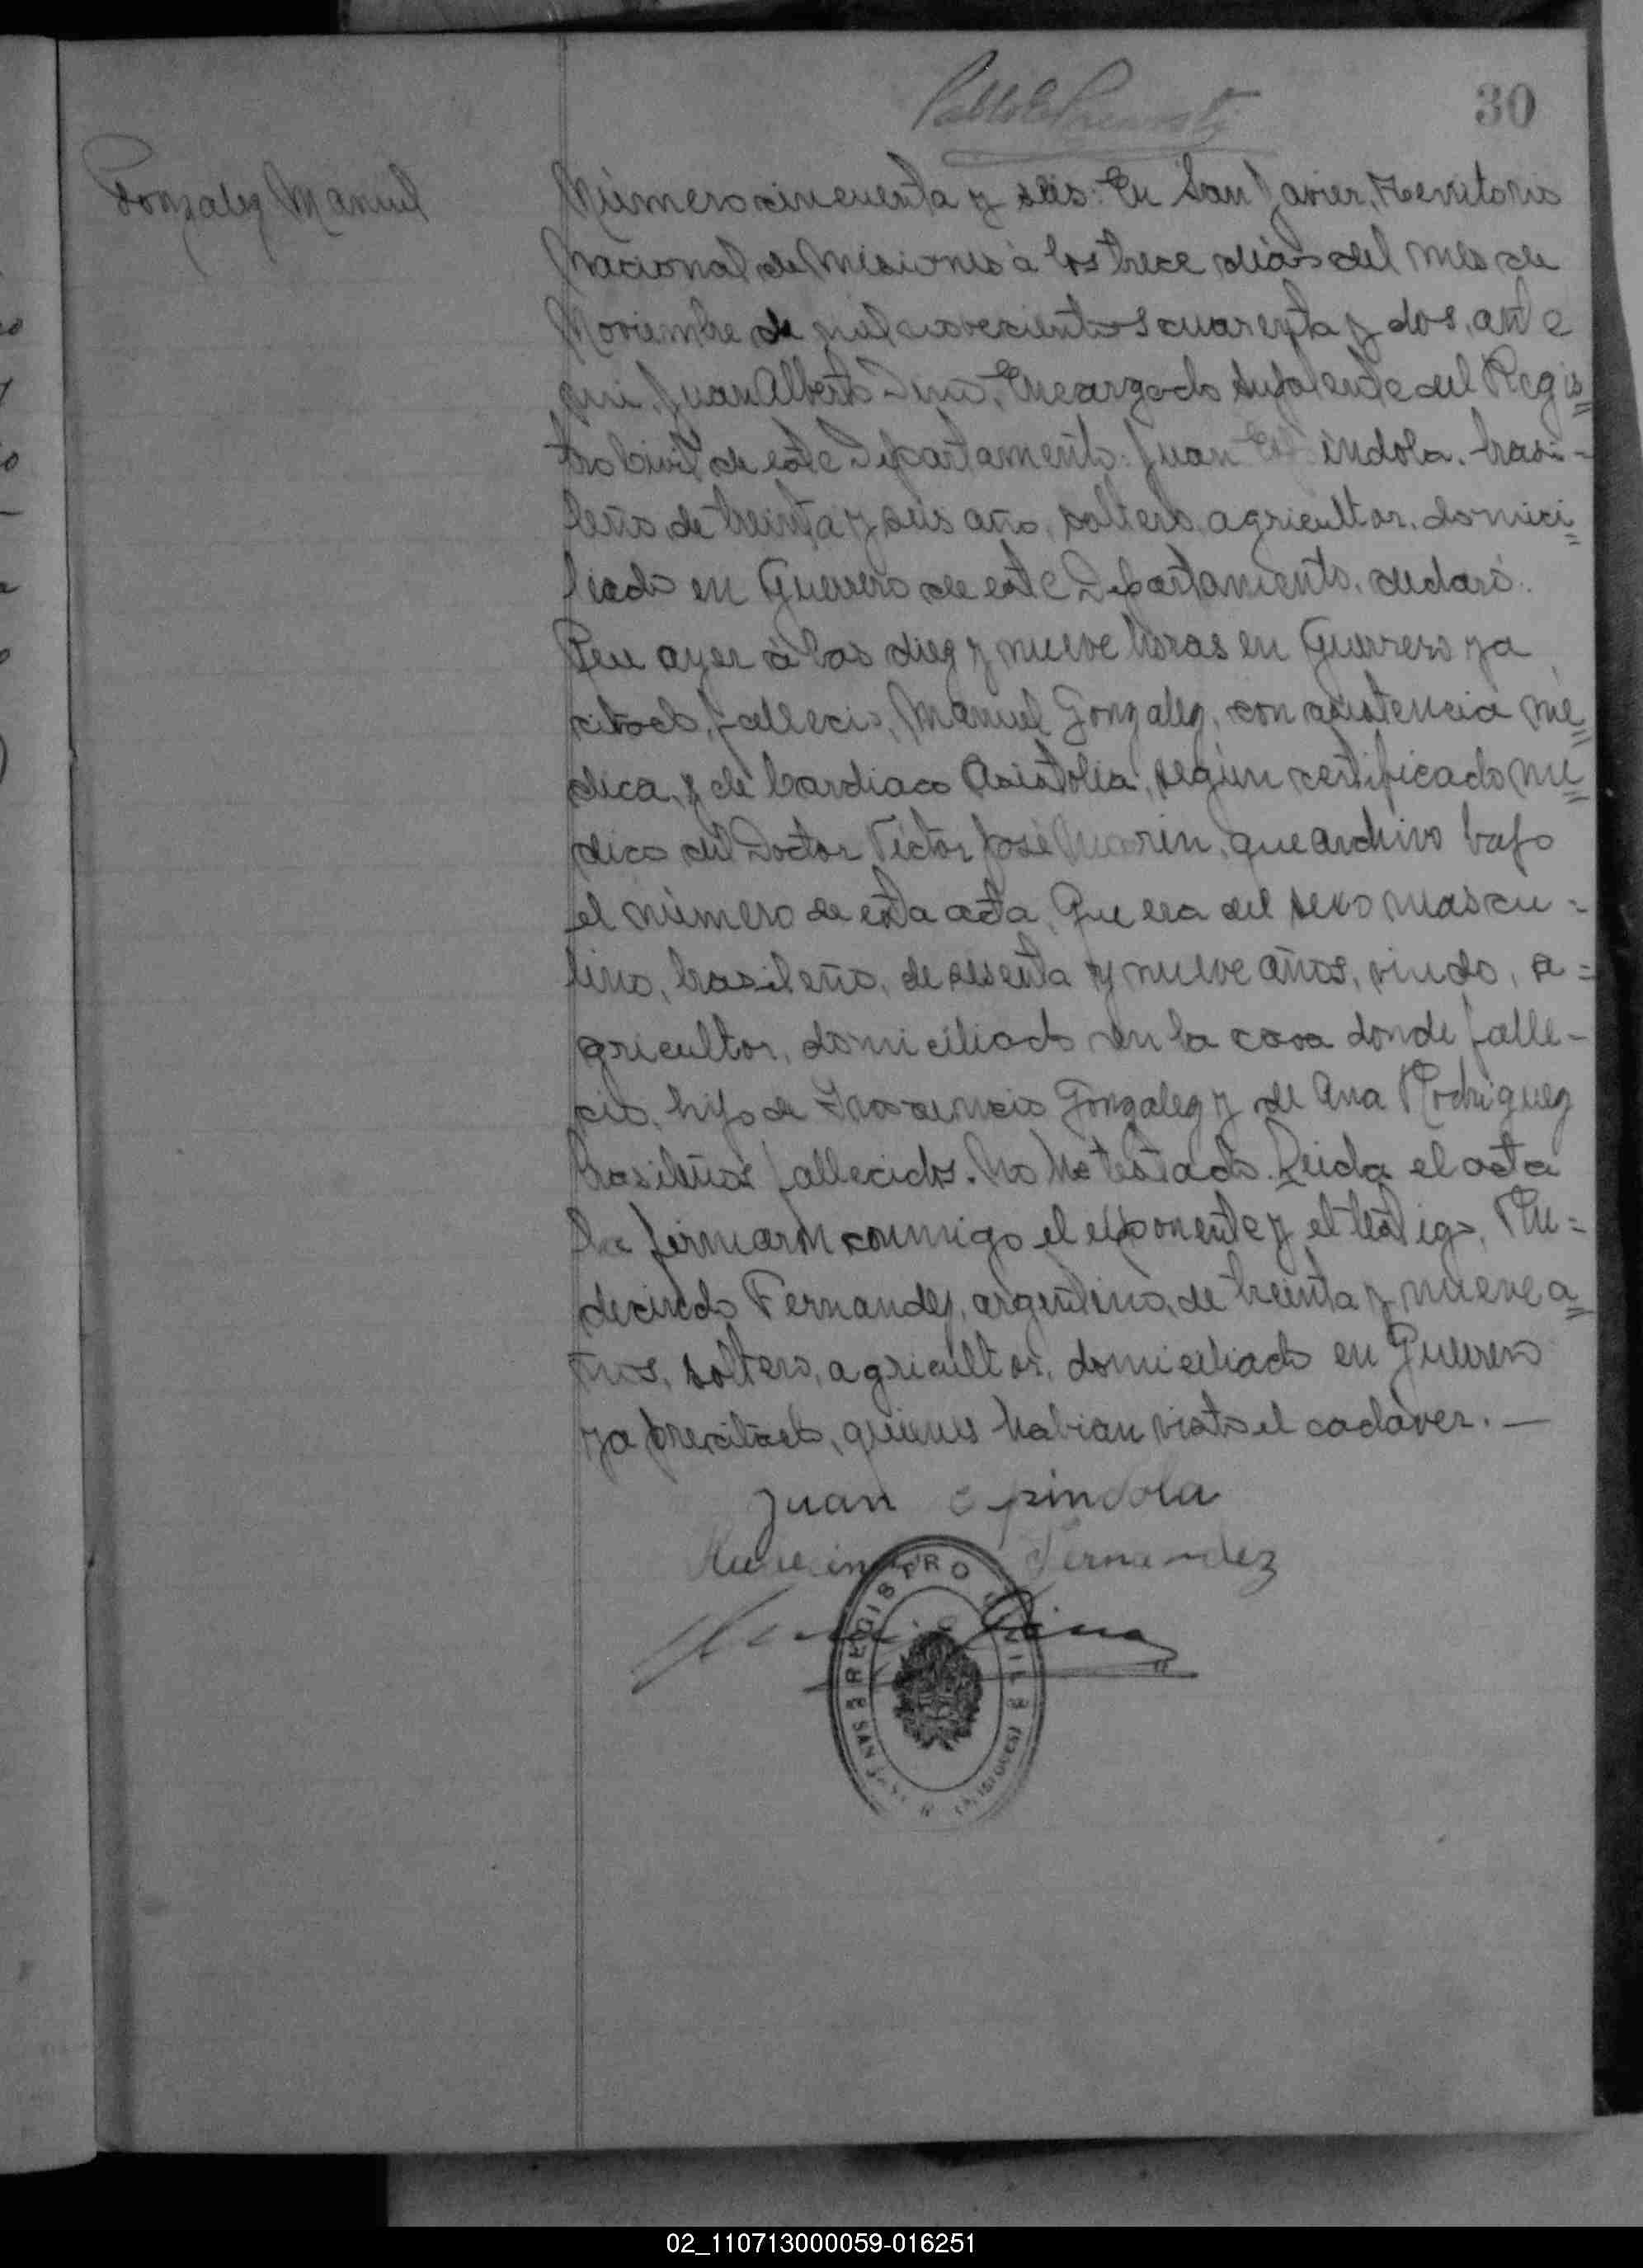 30
Gonzalez Manuel
Número cincuenta y seis: En San Javier, Territorio
Nacional de Misiones á los trece dias del mes de
Noviembre de mil novecientos cuarenta y dos, ante
mi, Juan Alberto Encargado Suplente del Regis=
tro Civil de este Departamento. Juan Espindola. brasi=
leño, de treinta y seis año, soltero, agricultor, domici=
liado en Guerrero de este Departamento, declaró.
Que ayer á las diez y nueve horas en Guerrero ya
citado, falleció, Manuel Gonzalez, con asistencia mé=
dica, y de Cardiaco Asistolia, según certificado mé=
dico del Doctor Victor José Marin, que archivo bajo
el número de esta acta. Que era del sexo mascu=
lino, brasileño, de sesenta y nueve años, viudo, a=
gricultor, domiciliado en la casa donde falle-
ció, hijo de Inocencio Gonzalez y de Ana Rodriguez
brasileños fallecidos. No ha testado. Leida el acta
la firmaron conmigo el exponente y el testigo, Ru=
decindo Fernandez, argentino, de treinta y nueve a=
ños, soltero, agricultor, domiciliado en Guerrero
ya precitado, quienes habian visto el cadáver. —
Juan Espindola
Rudecindo Fernandez
REGISTRO CIVIL
SAN JAVIER (MISIONES)
02_110713000059-016251